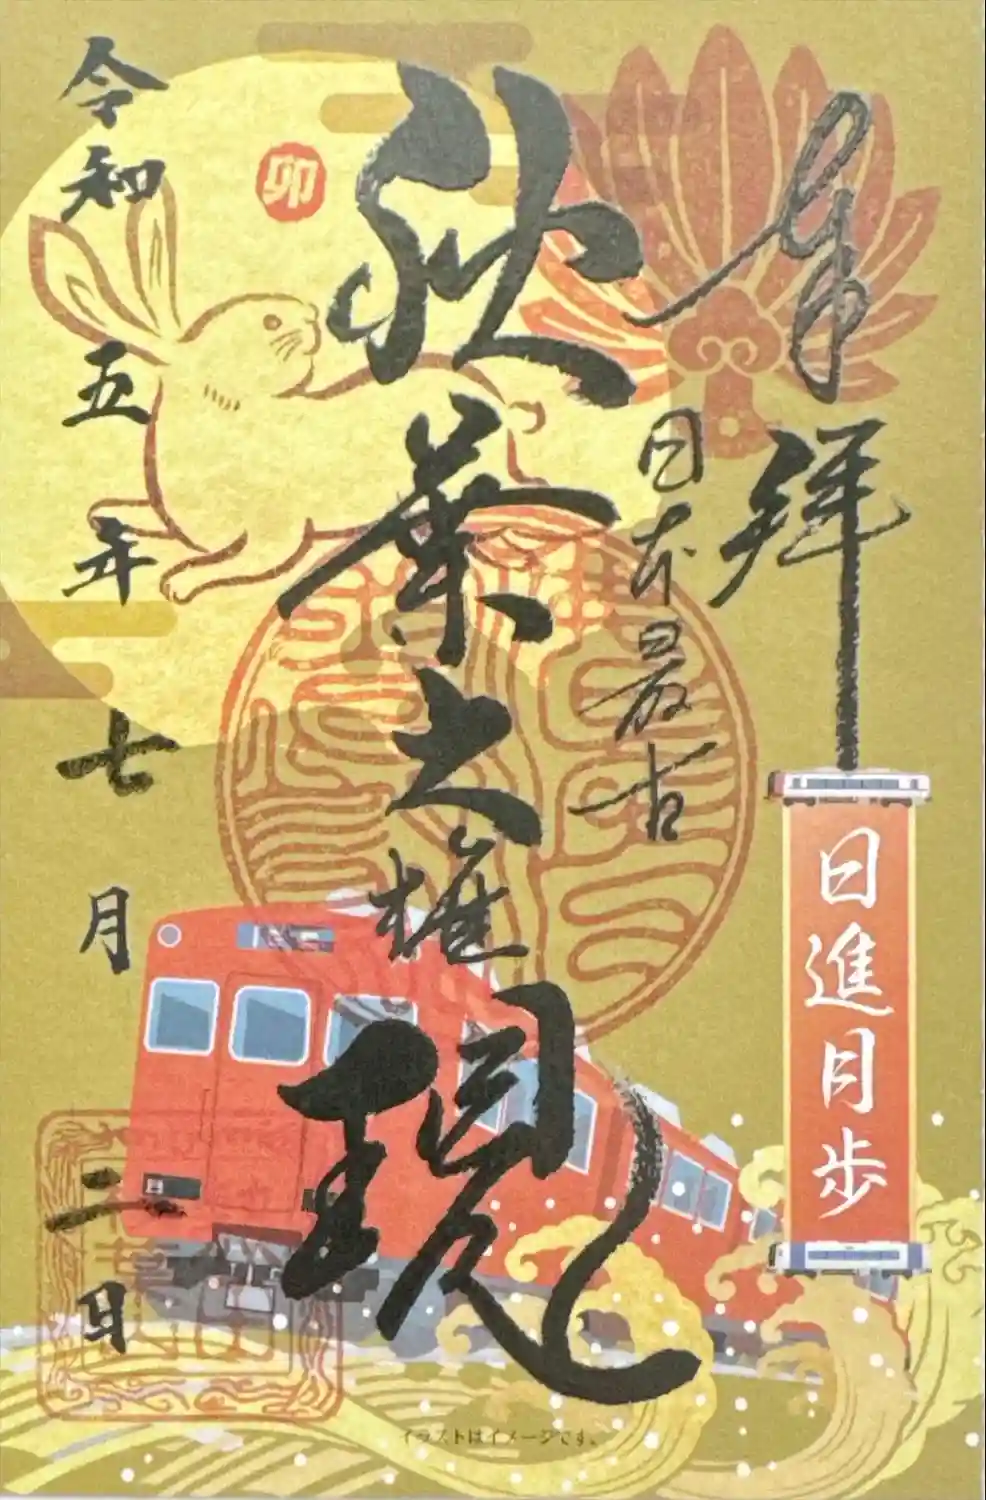 奉拝
日本最古
秋葉大権現
令和五年七月二日
卯
日進月歩
イラストはイメージです。